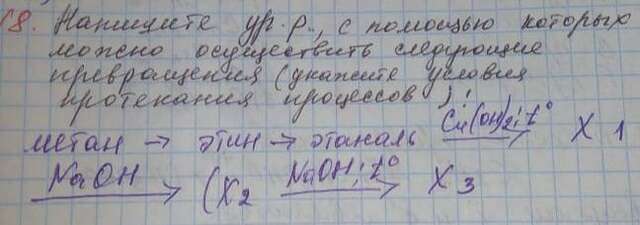 18. Напишите ур. р., с помощью которых
можно осуществить следующие
превращения (укажите условия
протекания процессов):
метан → этин → этаналь Cu(OH)2; t° → X 1
NaOH → (X2 NaOH; t° → X 3